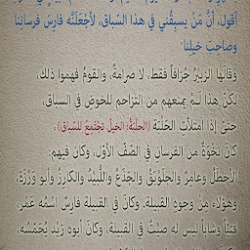 أقول، أنَّ مَنْ يسبِقُني في هذا السِّباقِ، لأجعلنَّهُ فارِسَ فرساننا
وصاحبَ خيلِنا"
وقالها الزبيرُ جُزافاً فقط، لا صرامةً، والقومُ فهموا ذلك،
لكنَّ هذا لَمْ يمنعهم من التزاحم للخوضِ في السباق،
حتى إذا امتلأت الحَلْبَةُ (الحلبَةُ: الخيلُ تجتَمِعُ للسباقِ)،
كانَ نُخْوَةٌ من الفرسانِ في الصَّفِّ الأوَّل، وكانَ فيهم:
الأخطلُ وعامرٌ والحَلَوْبَقُ والجذعُ واللَّبيدُ والكارِزُ وأبو وَزرَة،
وهؤلاءِ مِنْ وجوهِ القبيلة. وكانَ في القبيلةِ فارِسٌ اسْمُهُ عَمْر،
فتىً وشاباً ليسَ له صيتٌ في القبيلة، وكانَ أبوهُ زندُ يُحمِّسُه،